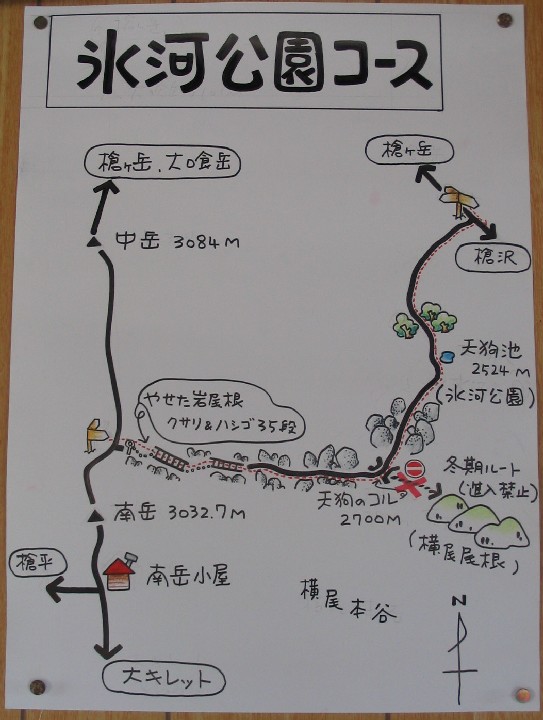 氷河公園コース
槍ヶ岳、大口喰岳
槍ヶ岳
中岳 3084M
槍沢
天狗池
2524M
(氷河公園)
やせた岩尾根
クサリ&ハシゴ35段
冬期ルート
(進入禁止)
天狗のコル
2700M
南岳 3032.7M
(横尾尾根)
槍平
南岳小屋
横尾本谷
N
大キレット